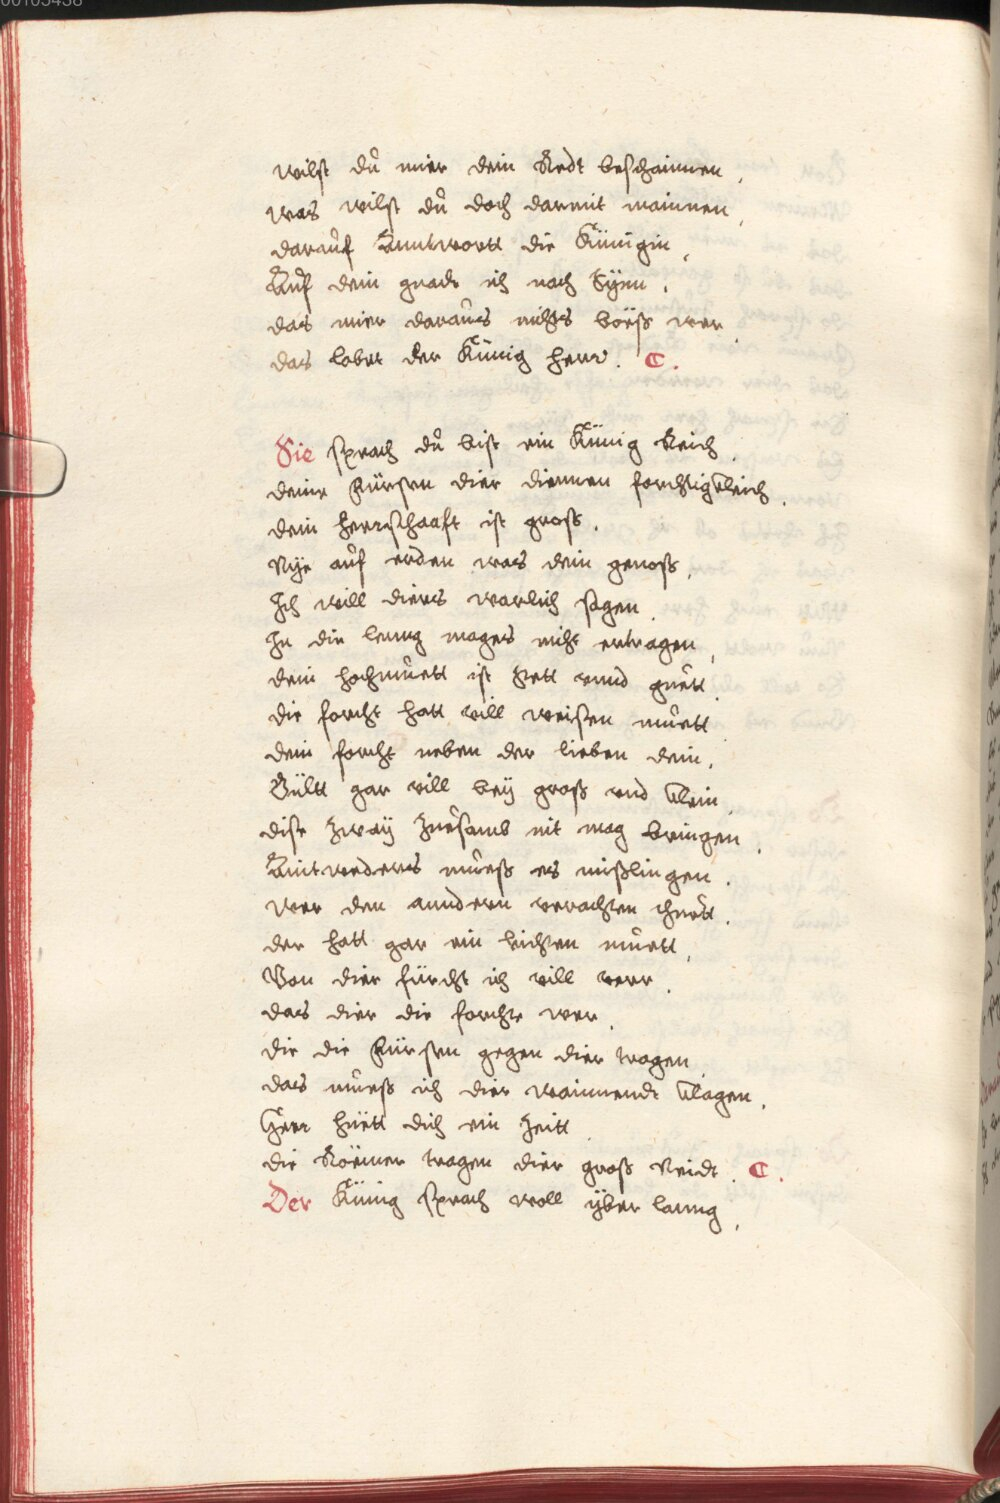 00105438
wilst dů mier dein Redt beschainnen,
was wilst dů doch darmit mainnen,
darauf Anntwortt die Künigin,
Auf dein gnade ich noch Syen.
das mier daraůs nichts böess wer.
das lobet der Künig herr. C.
Sie sprach dů bist ein Künig Reich,
deine Fürsten dier diennen forchtigkleich,
dein herrschaafft ist gross,
Nye auf erden was dein genoss,
Ich will diers warlich sagen
In die leung mages nicht ertragen,
dein hochmuett ist stett unnd guett,
die forcht hatt vill weisen muett
dein forcht neben der lieben dein,
Gültt gar vill bey gross und klein,
dise zway zuesamb nit mag bringen,
Aintweders muess es misslingen.
wer den anndern verachten thuett,
der hatt gar ein leichten muett,
Von dier fürcht ich vill verr,
das dier die forchte wer,
die die Fürsten gegen dier tragen
das muess ich dier wainnendt klagen,
Herr huett dich ein Zeitt
die Römer tragen dier gross Neidt. C.
Der Künig sprach woll yber lanng,